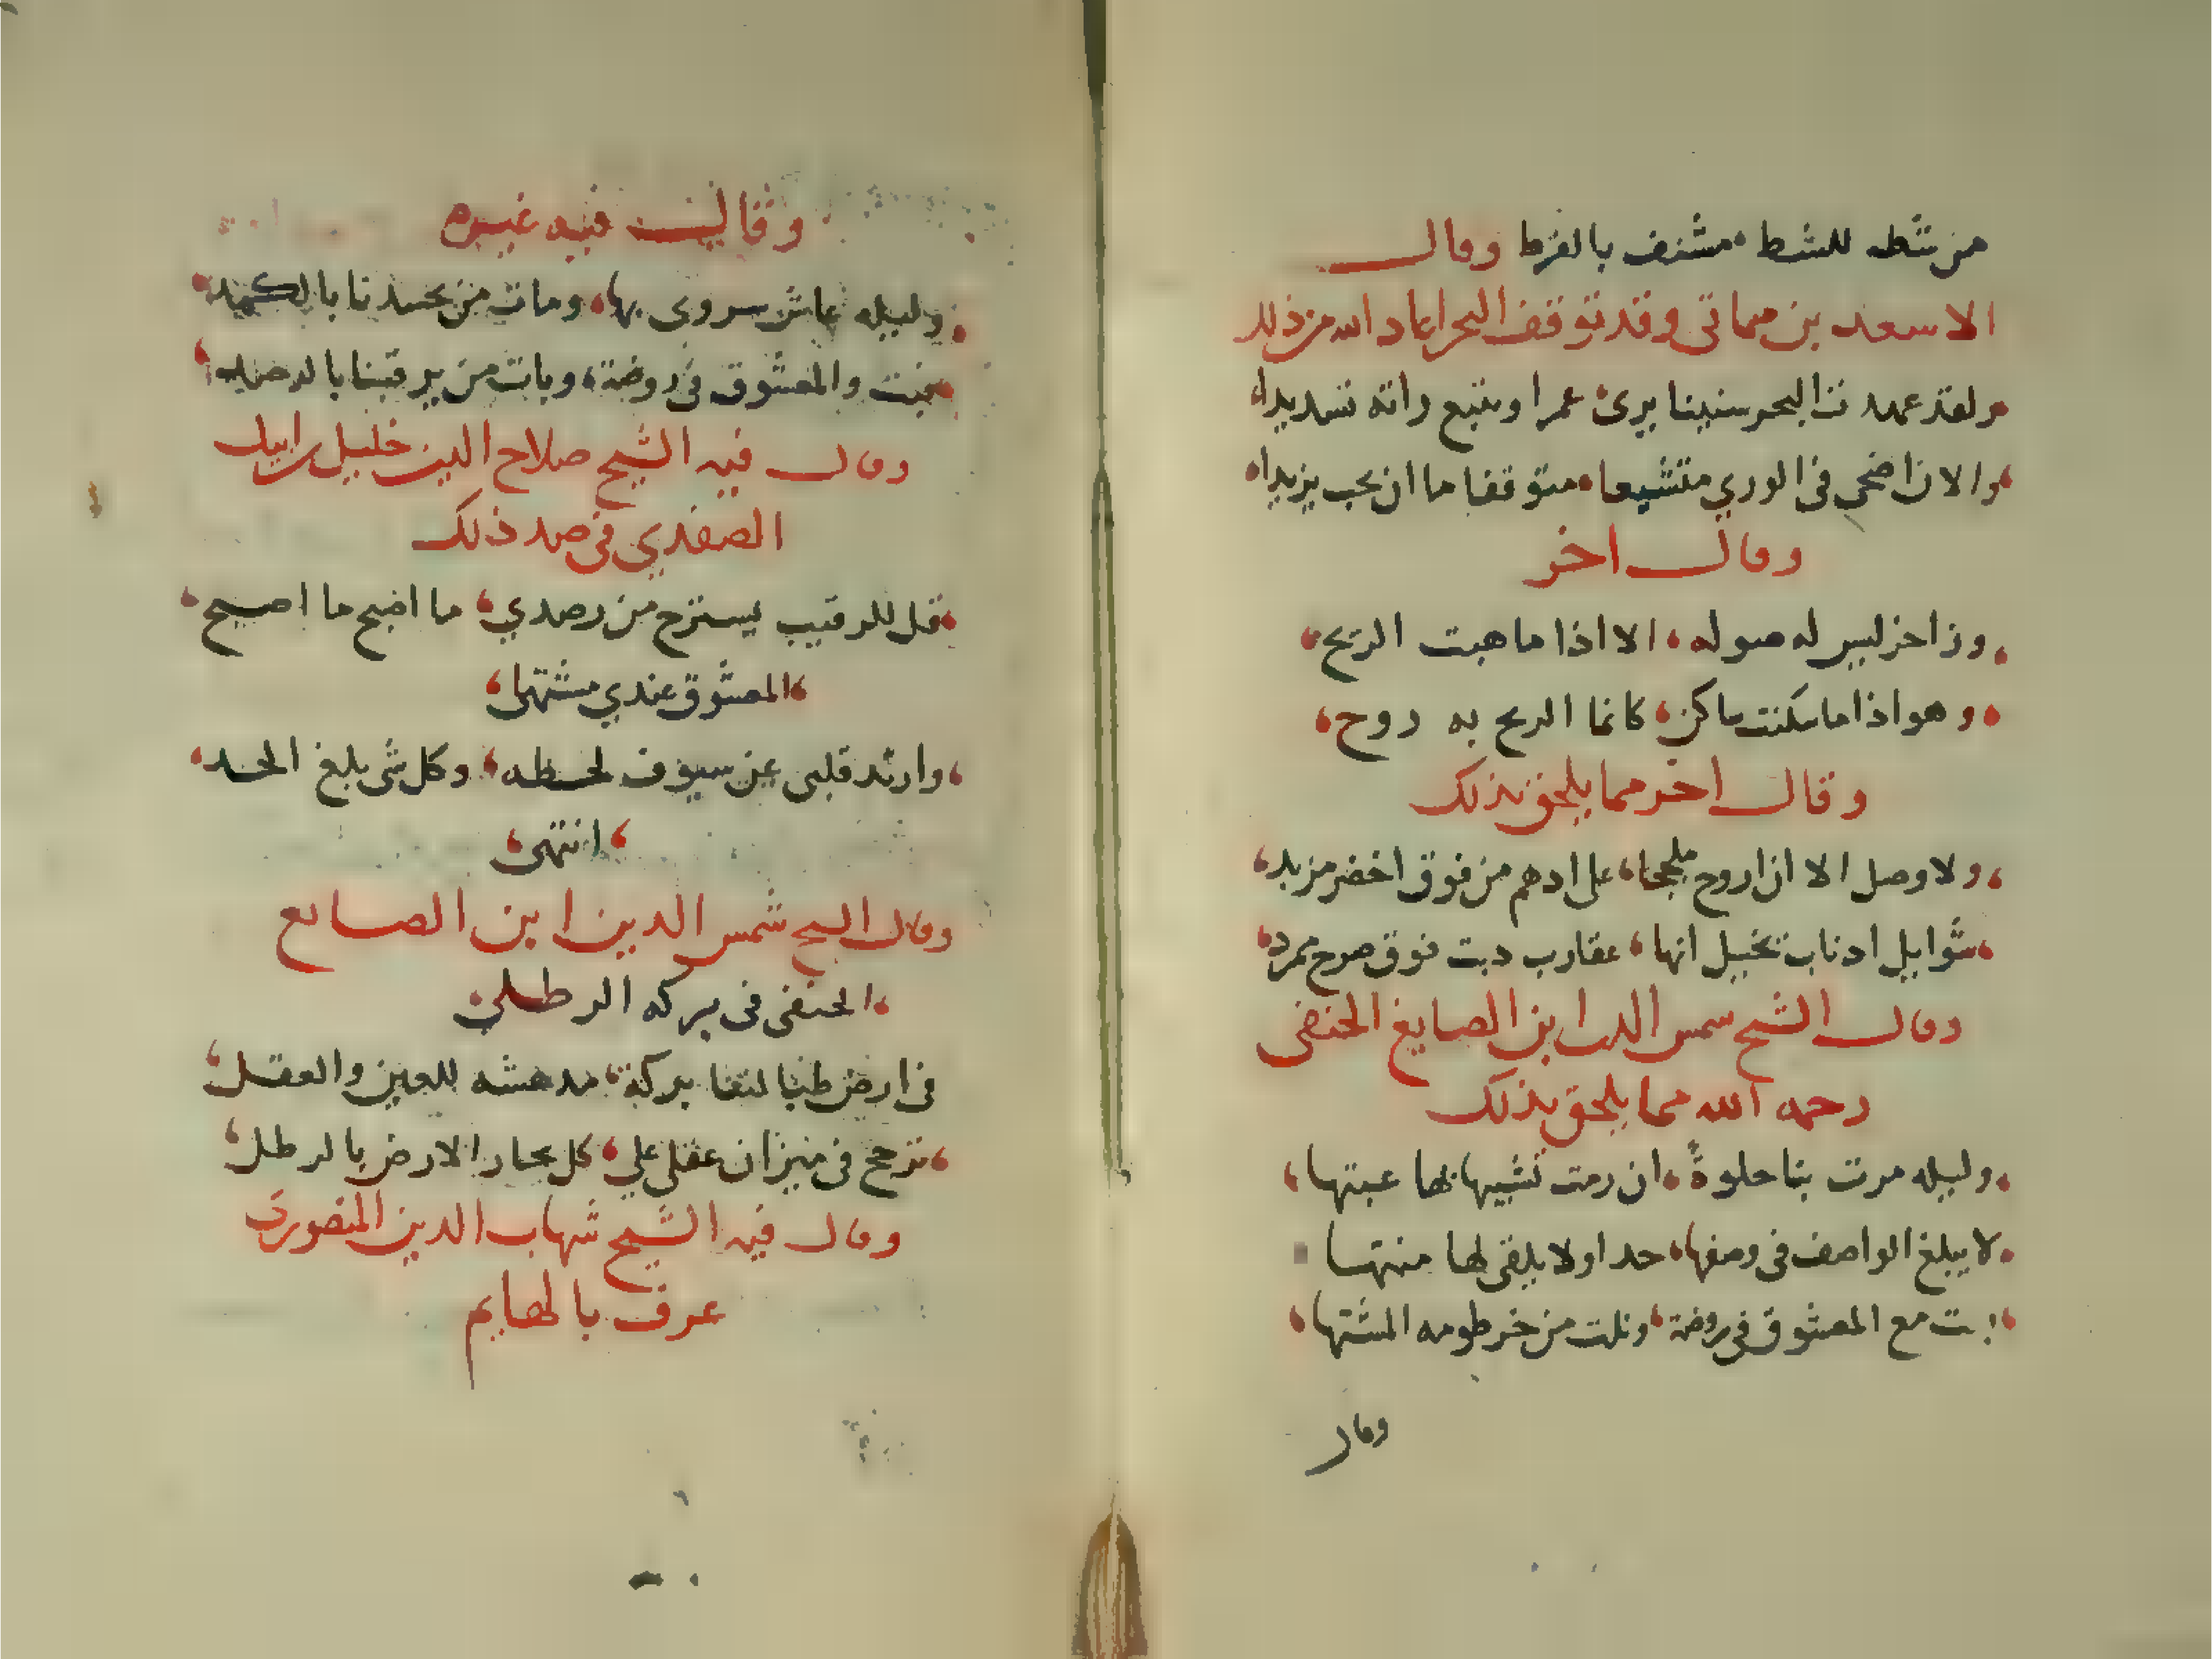 من شطه للشط مشنف بالقرط وقال
الاسعد بن مماتي وقد توقف البحر اعاد الله من ذلك
ولقد عهدت البحر سنينا يرى عمرا ويتبع راته تسديدا
والان اضحى في الورى متشيعا متوقفا ما ان يحب يزيدا
وقال اخر
وزاخر ليس له صوله الا اذا ما هبت الريح
وهو اذا ما سكنت ساكن كانما الريح به روح
وقال اخر مما يلحق بذلك
ولا وصل الا ان اروح ملججا على ادهم من فوق اخضر مزبد
شوايل اذناب تخيل انها عقارب دبت فوق صرح ممرد
وقال الشيخ شمس الدين ابن الصايغ الحنفي
رحمه الله مما يلحق بذلك
وليله مرت بنا حلوة ان رمت تشبيها بها عبتها
لا يبلغ الواصف في وصفها حدا ولا يلقى لها منتها
بت مع المعشوق في روضة ونلت من خرطومه المشتها
وقال
وقال فيه غيره
وليله عاش سروري بها ومات من يحسدنا بالكمد
بت والمعشوق في روضة وبات من يرقبنا بالرصد
وقال فيه الشيخ صلاح الدين خليل بن ايبك
الصفدي في صد ذلك
قل للرقيب يسترح من رصدي ما اضبح ما اصبح
المعشوق عندي مشتها
وارتد قلبي عن سيوف لحظه وكل شي بلغ الحد
انتهى
وقال الشيخ شمس الدين ابن الصايع
الحنفي في بركه الرطلي
في ارض طبالتنا بركة مدهشه للعين والعقل
ترجح في ميزان عقلي على كل بحار الارض بالرطل
وقال فيه الشيخ شهاب الدين المنصوري
عرف بالهايم